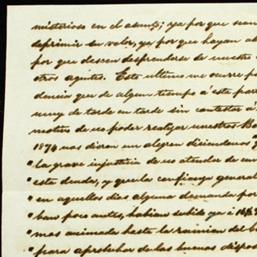 misterios en el asunto; ya por que sean
deprimir su valor, ya por que hayan
por que deseen desprenderse de nuestro
otros agentes. Esto ultimo me ocurre
dencia que de algun tiempo a esta parte
muy de tarde en tarde sin contestar á
motivo de no poder realizar nuestros Bo
1874 nos dieran un alegron diciendonos
la grave injusticia de no atender de
esta deuda, y que la confianza general
en aquellos dias alguna demanda por
baw poco antes, habian subido ya á
mas animada hasta la reunion del
para aprobechar de las buenas dispos